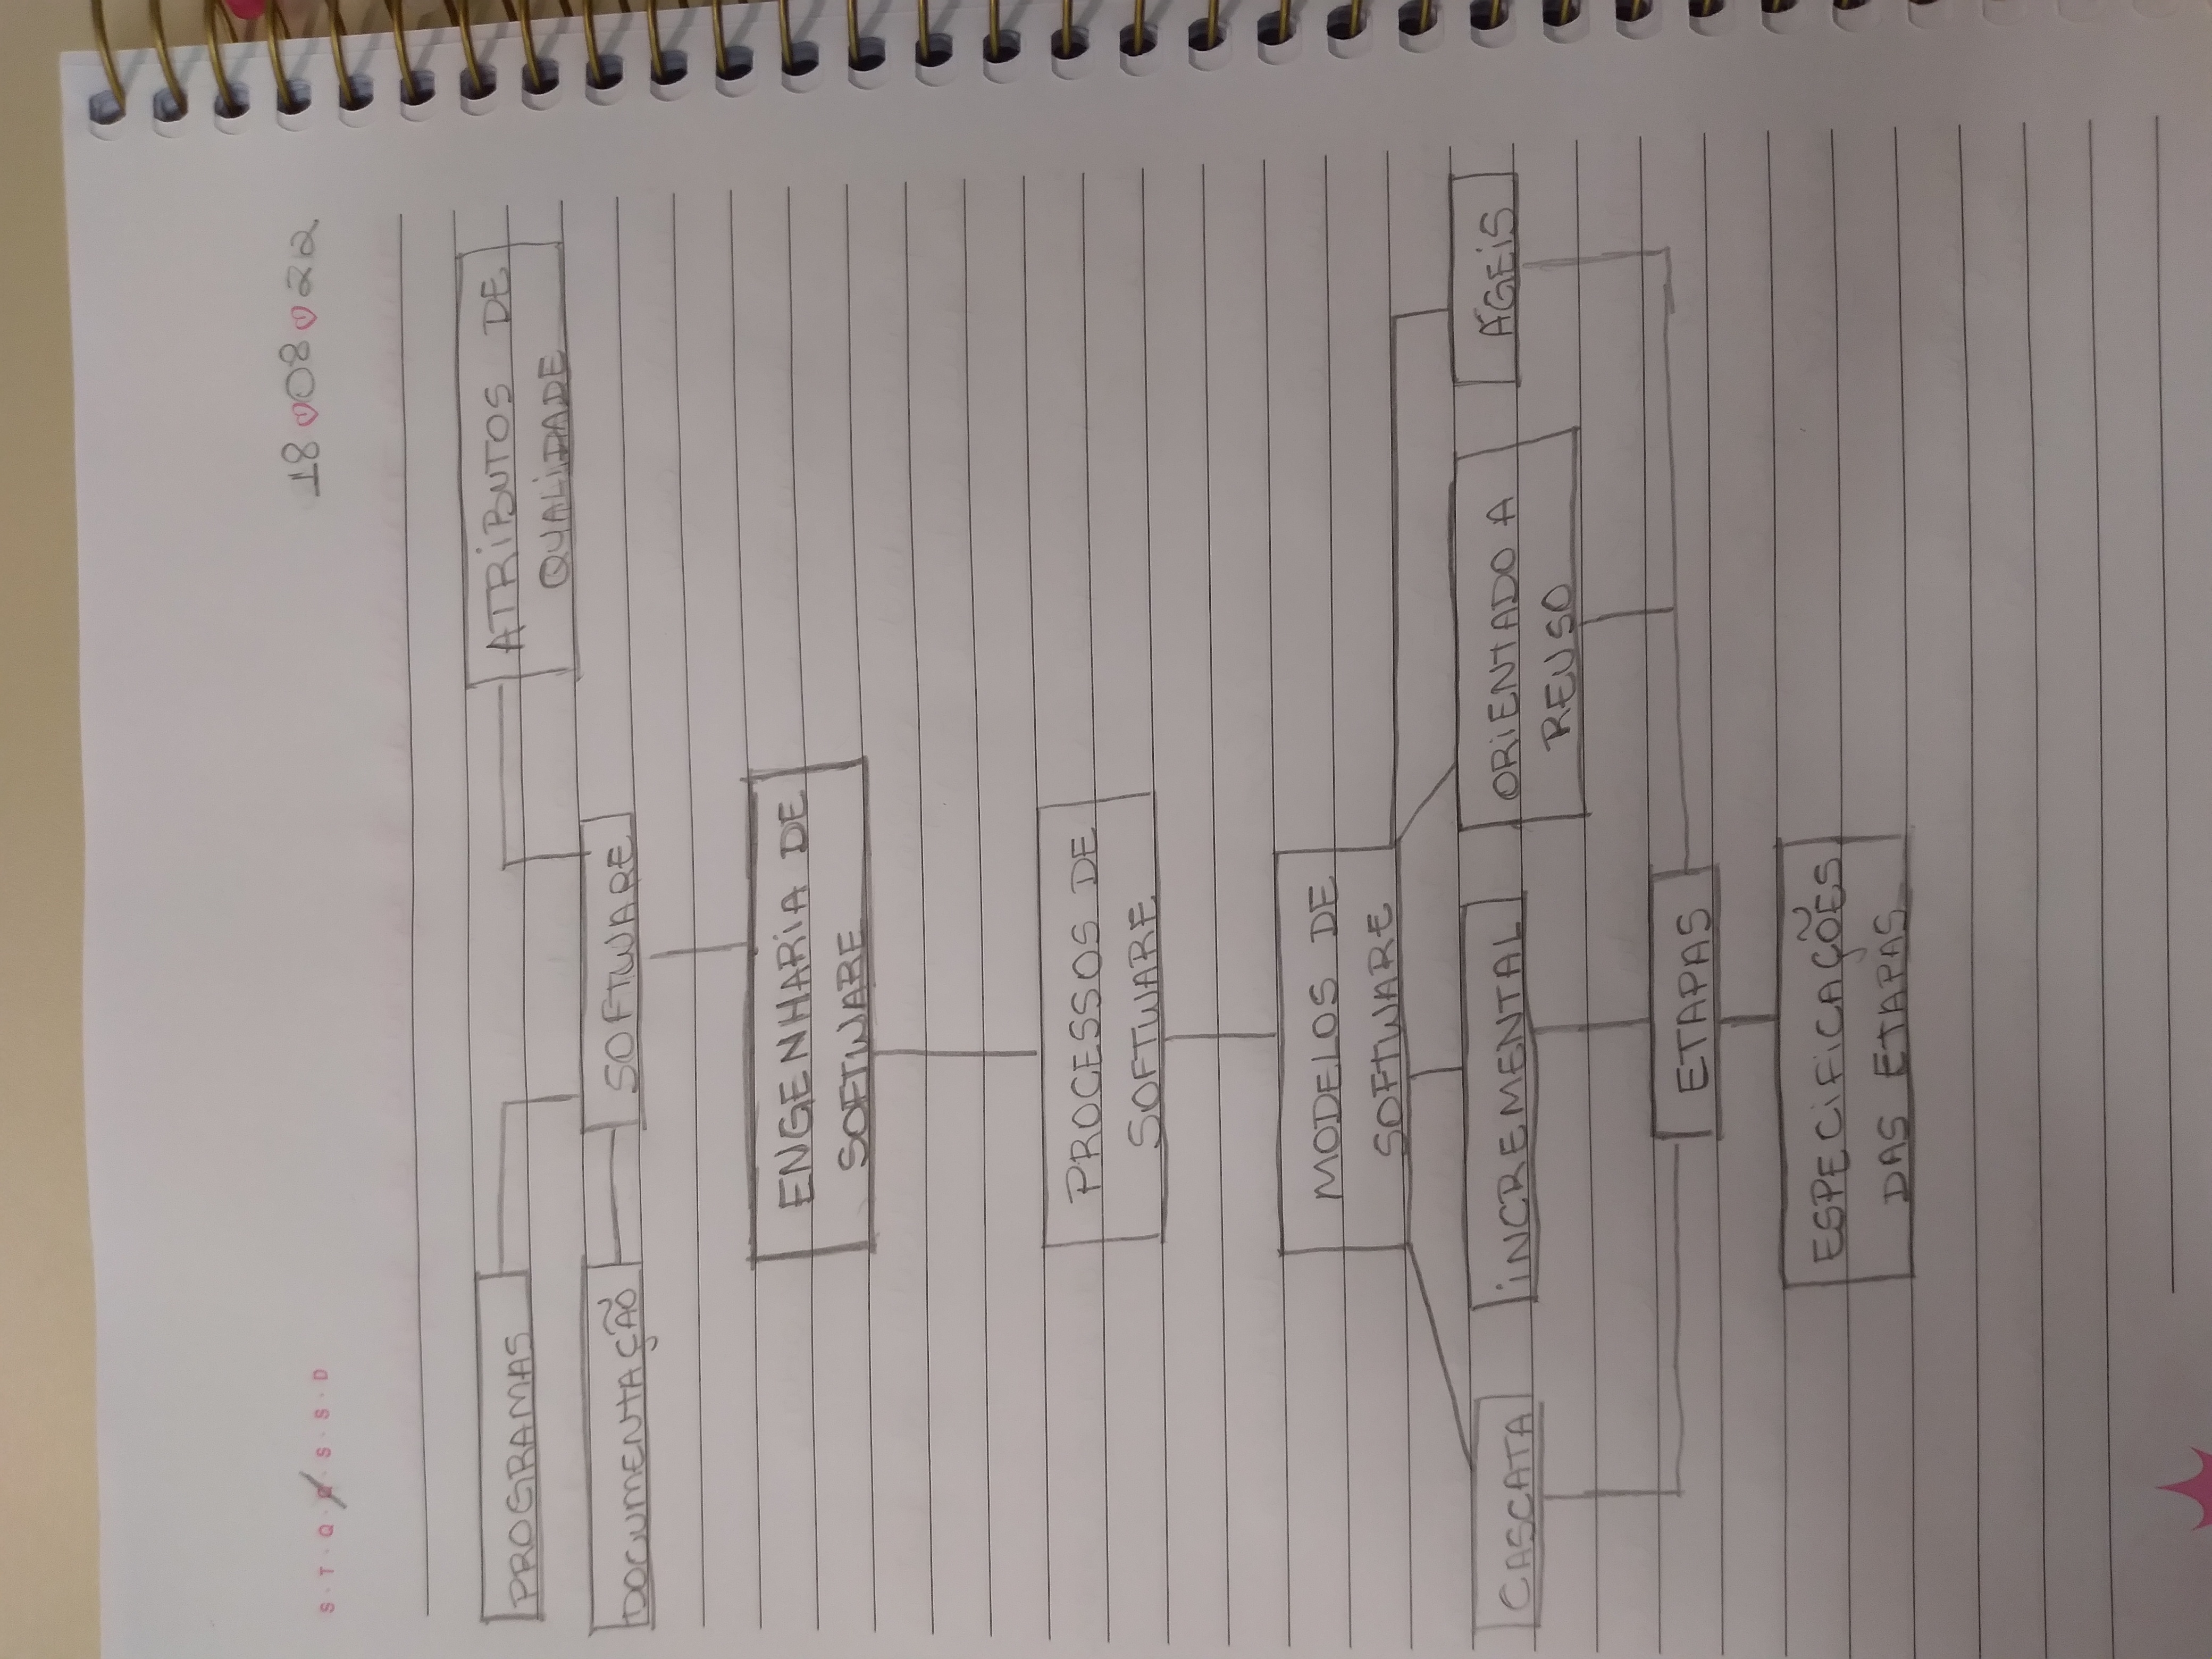 S · T · Q · Q · S · S · D
18 08 22
PROGRAMAS
ATRIBUTOS DE
QUALIDADE
DOCUMENTAÇÃO
SOFTWARE
ENGENHARIA DE
SOFTWARE
PROCESSOS DE
SOFTWARE
MODELOS DE
SOFTWARE
CASCATA
INCREMENTAL
ORIENTADO A
REUSO
ÁGEIS
ETAPAS
ESPECIFICAÇÕES
DAS ETAPAS